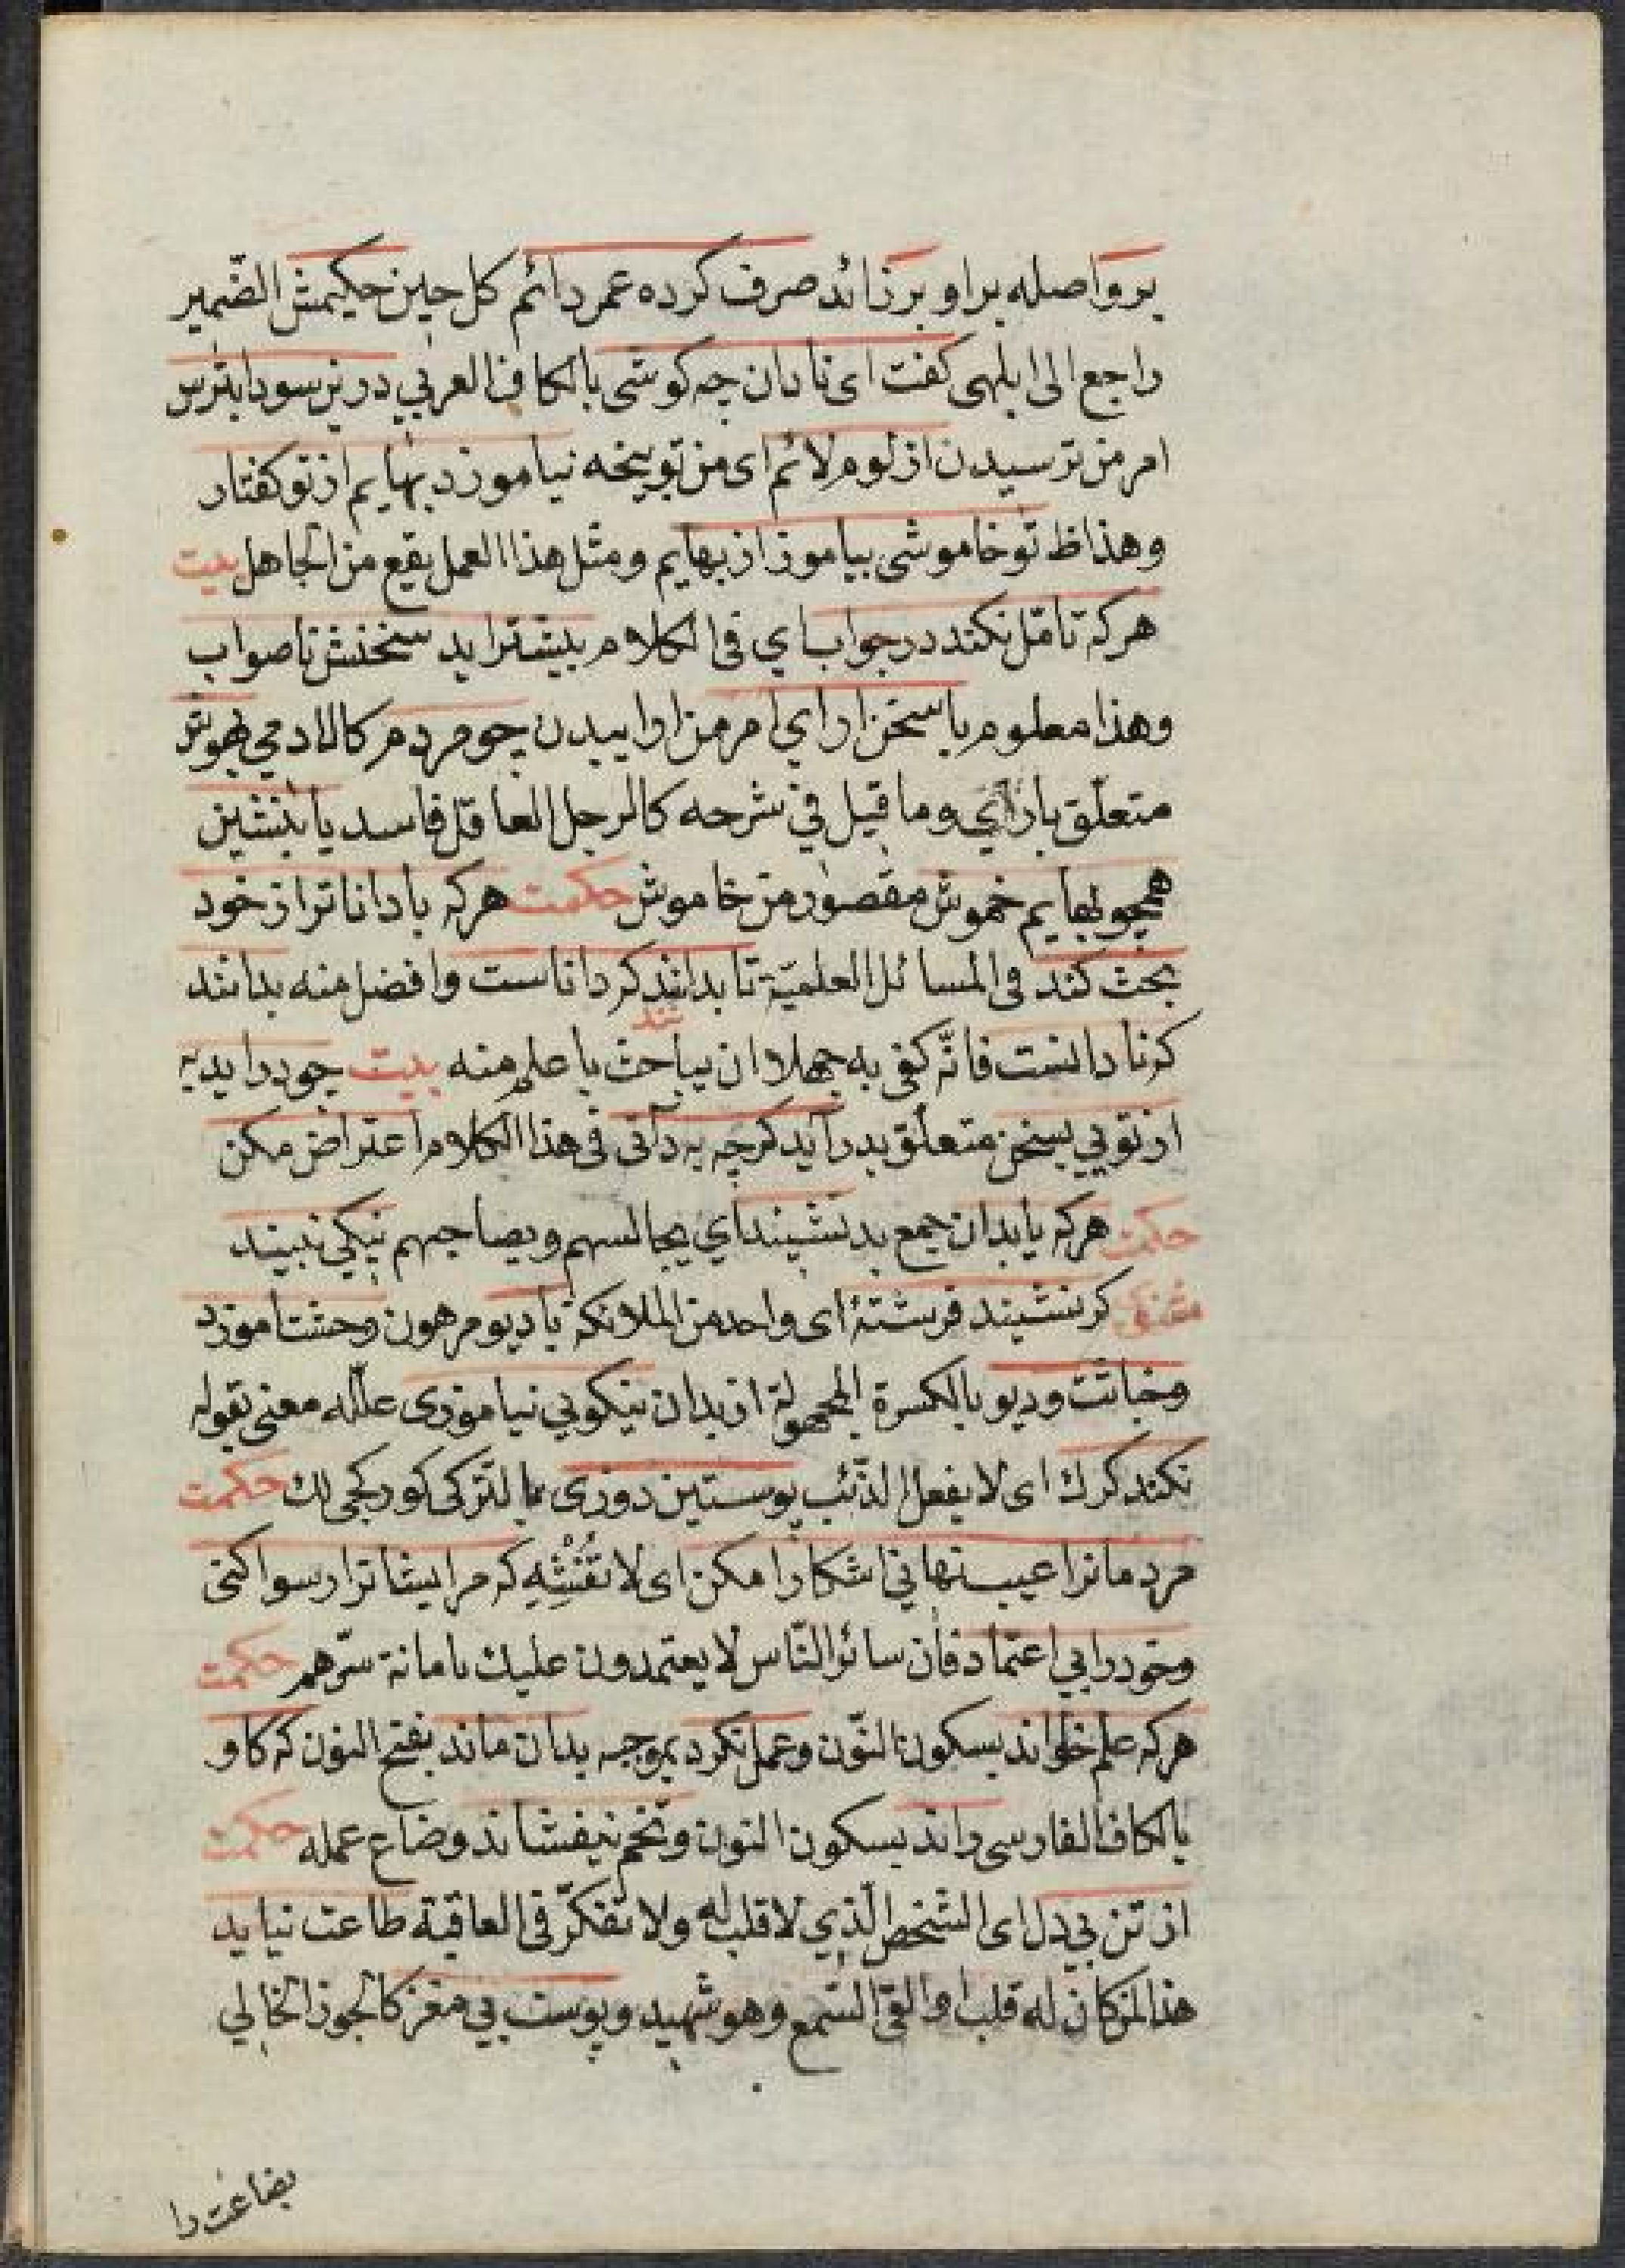 برو اصله بر او بر زائد صرف كرده عمر دائم كل حين حكيمش الضّمير
راجع الى ابلهى كفت اى نادان چه كوشى بالكاف العربي درين سودا بترس
امر من ترسيدن از لوم لائم اى من توبيخه نياموزد بهايم از تو كفتار
وهذا ظ تو خاموشى بياموز از بهايم ومثل هذا العمل يقع من الجاهل بيت
هركه تامّل نكند در جواب اي فى الكلام بيشتر ايد سخنش ناصواب
وهذا معلوم يا سخن اراي امر من اراييدن چو مردم كالادمي بهوش
متعلّق باراي وما قيل في شرحه كالرجل العاقل فاسد يا بنشين
همچو بهايم خموش مقصور من خاموش حكمت هركه با داناتر از خود
بحث كند فى المسائل العلميّة تا بدانند كه داناست وافضل منه بدانند
كه نادانست فانّه كفى به جهلا ان يباحث با علم منه بيت چو درايد به
از تويي بسخن متعلّق بدرآيد كرچه به دانى فى هذا الكلام اعتراض مكن
حكمت هركه با بدان جمع بد نشيند اي يجالسهم ويصاحبهم نيكي نبيند
مثنوى كر نشيند فرشتۀ اى واحد من الملائكة با ديو مرهون وحشت اموزد
وخيانت وديو بالكسرة المجهولة از بدان نيكويي نياموزى علّله معنى بقوله
نكند كرك اى لا يفعل الذّئب پوستين دوزى بالتّركى كوركجى لك حكمت
مردمانرا عيب نهاني اشكارا مكن اى لا تفشه كه مر ايشانرا رسوا كنى
وخود را بي اعتماد فان سائر النّاس لا يعتمدون عليك بامانة سرّهم حكمت
هركه علم خواند بسكون النّون وعمل نكرد بموجبه بدان ماند بفتح النون كه كاو
بالكاف الفارسى راند بسكون النون وتخم نيفشاند وضاع عمله حكمت
از تن بي دل اى الشخص الّذي لا قلب له ولا تفكّر فى العاقبة طاعت نيايد
هذا لمن كان له قلب او القى السّمع وهو شهيد وپوست بي مغز كالجوز الخالي
بضاعت را